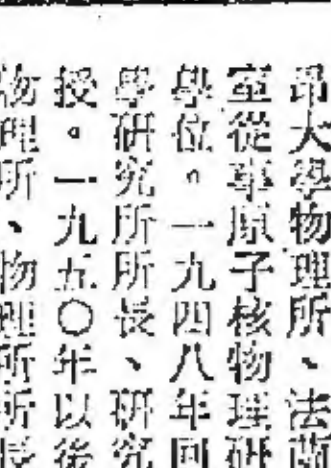 昂大學物理所、法蘭
室從事原子核物理研
學位。一九四八年回
學研究所所長、研究
授。一九五〇年以後
物理所、物理所所長